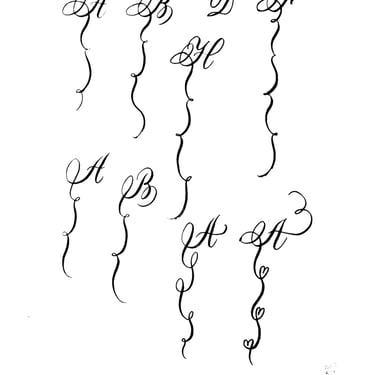 A B D
H
A B
A A